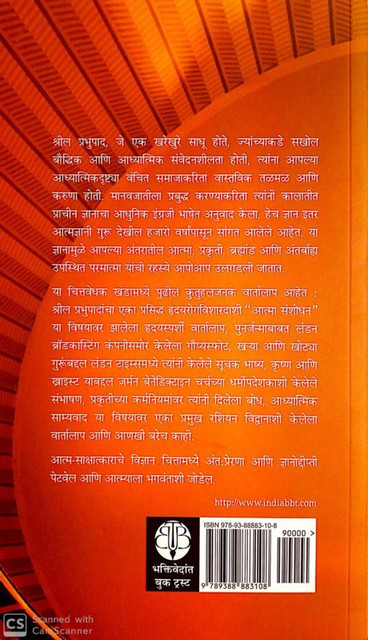 श्रील प्रभुपाद, जे एक खरेखुरे साधू होते, ज्यांच्याकडे सखोल
बौद्धिक आणि आध्यात्मिक संवेदनशीलता होती, त्यांना आपल्या
आध्यात्मिकदृष्ट्या वंचित समाजाकरिता वास्तविक तळमळ आणि
करुणा होती. मानवजातीला प्रबुद्ध करण्याकरिता त्यांनी कालातीत
प्राचीन ज्ञानाचा आधुनिक इंग्रजी भाषेत अनुवाद केला. हेच ज्ञान इतर
आत्मज्ञानी गुरू देखील हजारो वर्षांपासून सांगत आलेले आहेत. या
ज्ञानामुळे आपल्या अंतरातील आत्मा, प्रकृती, ब्रह्मांड आणि अंतर्बाह्य
उपस्थित परमात्मा यांची रहस्ये आपोआप उलगडली जातात.
या चित्तवेधक खंडामध्ये पुढील कुतुहलजनक वार्तालाप आहेत :
श्रील प्रभुपादांचा एका प्रसिद्ध हृदयरोगविशारदाशी “आत्मा संशोधन”
या विषयावर झालेला हृदयस्पर्शी वार्तालाप, पुनर्जन्माबाबत लंडन
ब्रॉडकास्टिंग कंपनीसमोर केलेला गौप्यस्फोट, खऱ्या आणि खोट्या
गुरूंबद्दल लंडन टाइम्समध्ये त्यांनी केलेले सूचक भाष्य, कृष्ण आणि
ख्राइस्ट याबद्दल जर्मन बेनेडिक्टाइन चर्चच्या धर्मोपदेशकाशी केलेले
संभाषण, प्रकृतीच्या कर्मनियमांवर त्यांनी दिलेला बोध, आध्यात्मिक
साम्यवाद या विषयावर एका प्रमुख रशियन विद्वानाशी केलेला
वार्तालाप आणि आणखी बरेच काही.
आत्म-साक्षात्काराचे विज्ञान चित्तामध्ये अंतःप्रेरणा आणि ज्ञानोद्दीप्ती
पेटवेल आणि आत्म्याला भगवंताशी जोडेल.
http://www.indiabbt.com
ISBN 978-93-88883-10-8
90000 >
BBT
भक्तिवेदांत
बुक ट्रस्ट
9 789388 883108
CS Scanned with
CamScanner